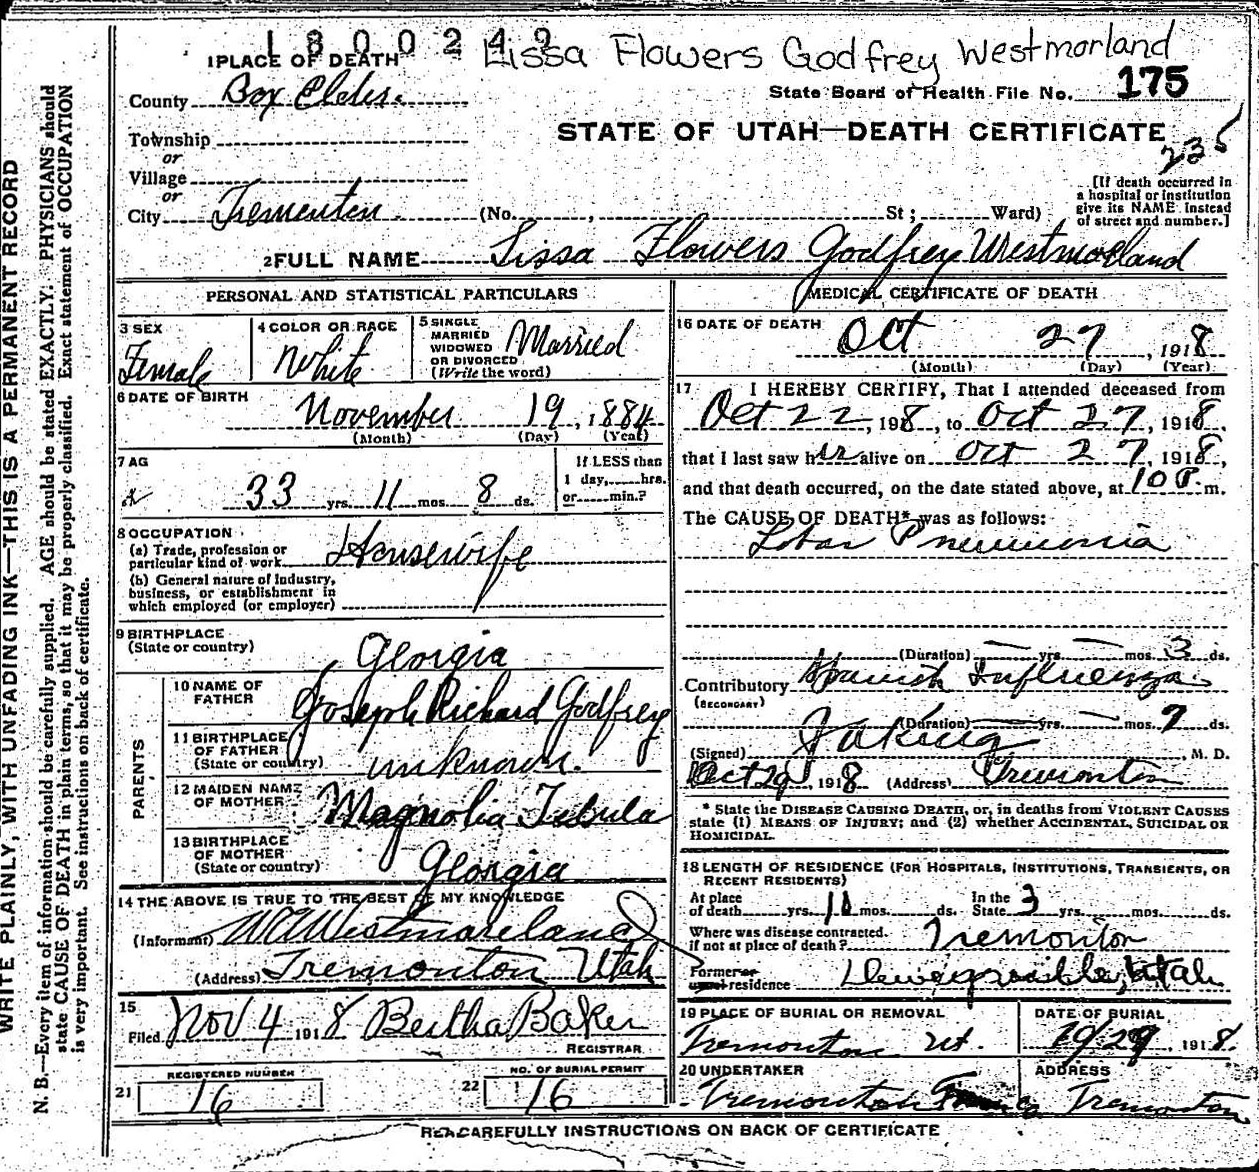 1800249 Lissa Flowers Godfrey Westmorland
1 PLACE OF DEATH
County Box Elder.
State Board of Health File No. 175
Township
STATE OF UTAH—DEATH CERTIFICATE
235
or
Village
or
City Tremonton (No. , St ; Ward)
[If death occurred in
a hospital or institution
give its NAME instead
of street and number.]
2 FULL NAME Lissa Flowers Godfrey Westmoreland
PERSONAL AND STATISTICAL PARTICULARS
3 SEX
Female
4 COLOR OR RACE
White
5 SINGLE
MARRIED
WIDOWED
OR DIVORCED
(Write the word)
Married
6 DATE OF BIRTH
November 19, 1884
(Month) (Day) (Year)
7 AG
33 yrs. 11 mos. 8 ds.
If LESS than
1 day, hrs.
or min.?
8 OCCUPATION
(a) Trade, profession or
particular kind of work Housewife
(b) General nature of industry,
business, or establishment in
which employed (or employer)
9 BIRTHPLACE
(State or country) Georgia
PARENTS
10 NAME OF
FATHER Joseph Richard Godfrey
11 BIRTHPLACE
OF FATHER
(State or country) unknown.
12 MAIDEN NAME
OF MOTHER Magnolia Tebula
13 BIRTHPLACE
OF MOTHER
(State or country) Georgia
14 THE ABOVE IS TRUE TO THE BEST OF MY KNOWLEDGE
(Informant) W A Westmoreland
(Address) Tremonton Utah
15
Filed Nov 4 1918 Bertha Baker
REGISTRAR
REGISTERED NUMBER
21 16
NO. OF BURIAL PERMIT
22 16
MEDICAL CERTIFICATE OF DEATH
16 DATE OF DEATH
Oct 27, 1918
(Month) (Day) (Year)
17 I HEREBY CERTIFY, That I attended deceased from
Oct 22, 198, to Oct 27, 1918,
that I last saw her alive on Oct 27, 1918,
and that death occurred, on the date stated above, at 10 P. m.
The CAUSE OF DEATH* was as follows:
Lobar Pneumonia
(Duration) yrs. mos. 3 ds.
Contributory Spanish Influenza
(SECONDARY)
(Duration) yrs. mos. 7 ds.
(Signed) M. D.
Oct 29, 1918 (Address) Tremonton
* State the DISEASE CAUSING DEATH, or, in deaths from VIOLENT CAUSES
state (1) MEANS OF INJURY; and (2) whether ACCIDENTAL, SUICIDAL OR
HOMICIDAL.
18 LENGTH OF RESIDENCE (FOR HOSPITALS, INSTITUTIONS, TRANSIENTS, OR
RECENT RESIDENTS)
At place
of death yrs. 11 mos. ds.
In the
State 3 yrs. mos. ds.
Where was disease contracted.
if not at place of death? Tremonton
Former or
usual residence Deweyville, Utah
19 PLACE OF BURIAL OR REMOVAL
Tremonton Ut.
DATE OF BURIAL
10/29, 1918.
20 UNDERTAKER
Tremonton
ADDRESS
Tremonton
READ CAREFULLY INSTRUCTIONS ON BACK OF CERTIFICATE
WRITE PLAINLY, WITH UNFADING INK—THIS IS A PERMANENT RECORD
N. B.—Every item of information should be carefully supplied. AGE should be stated EXACTLY. PHYSICIANS should
state CAUSE OF DEATH in plain terms, so that it may be properly classified. Exact statement of OCCUPATION
is very important. See instructions on back of certificate.